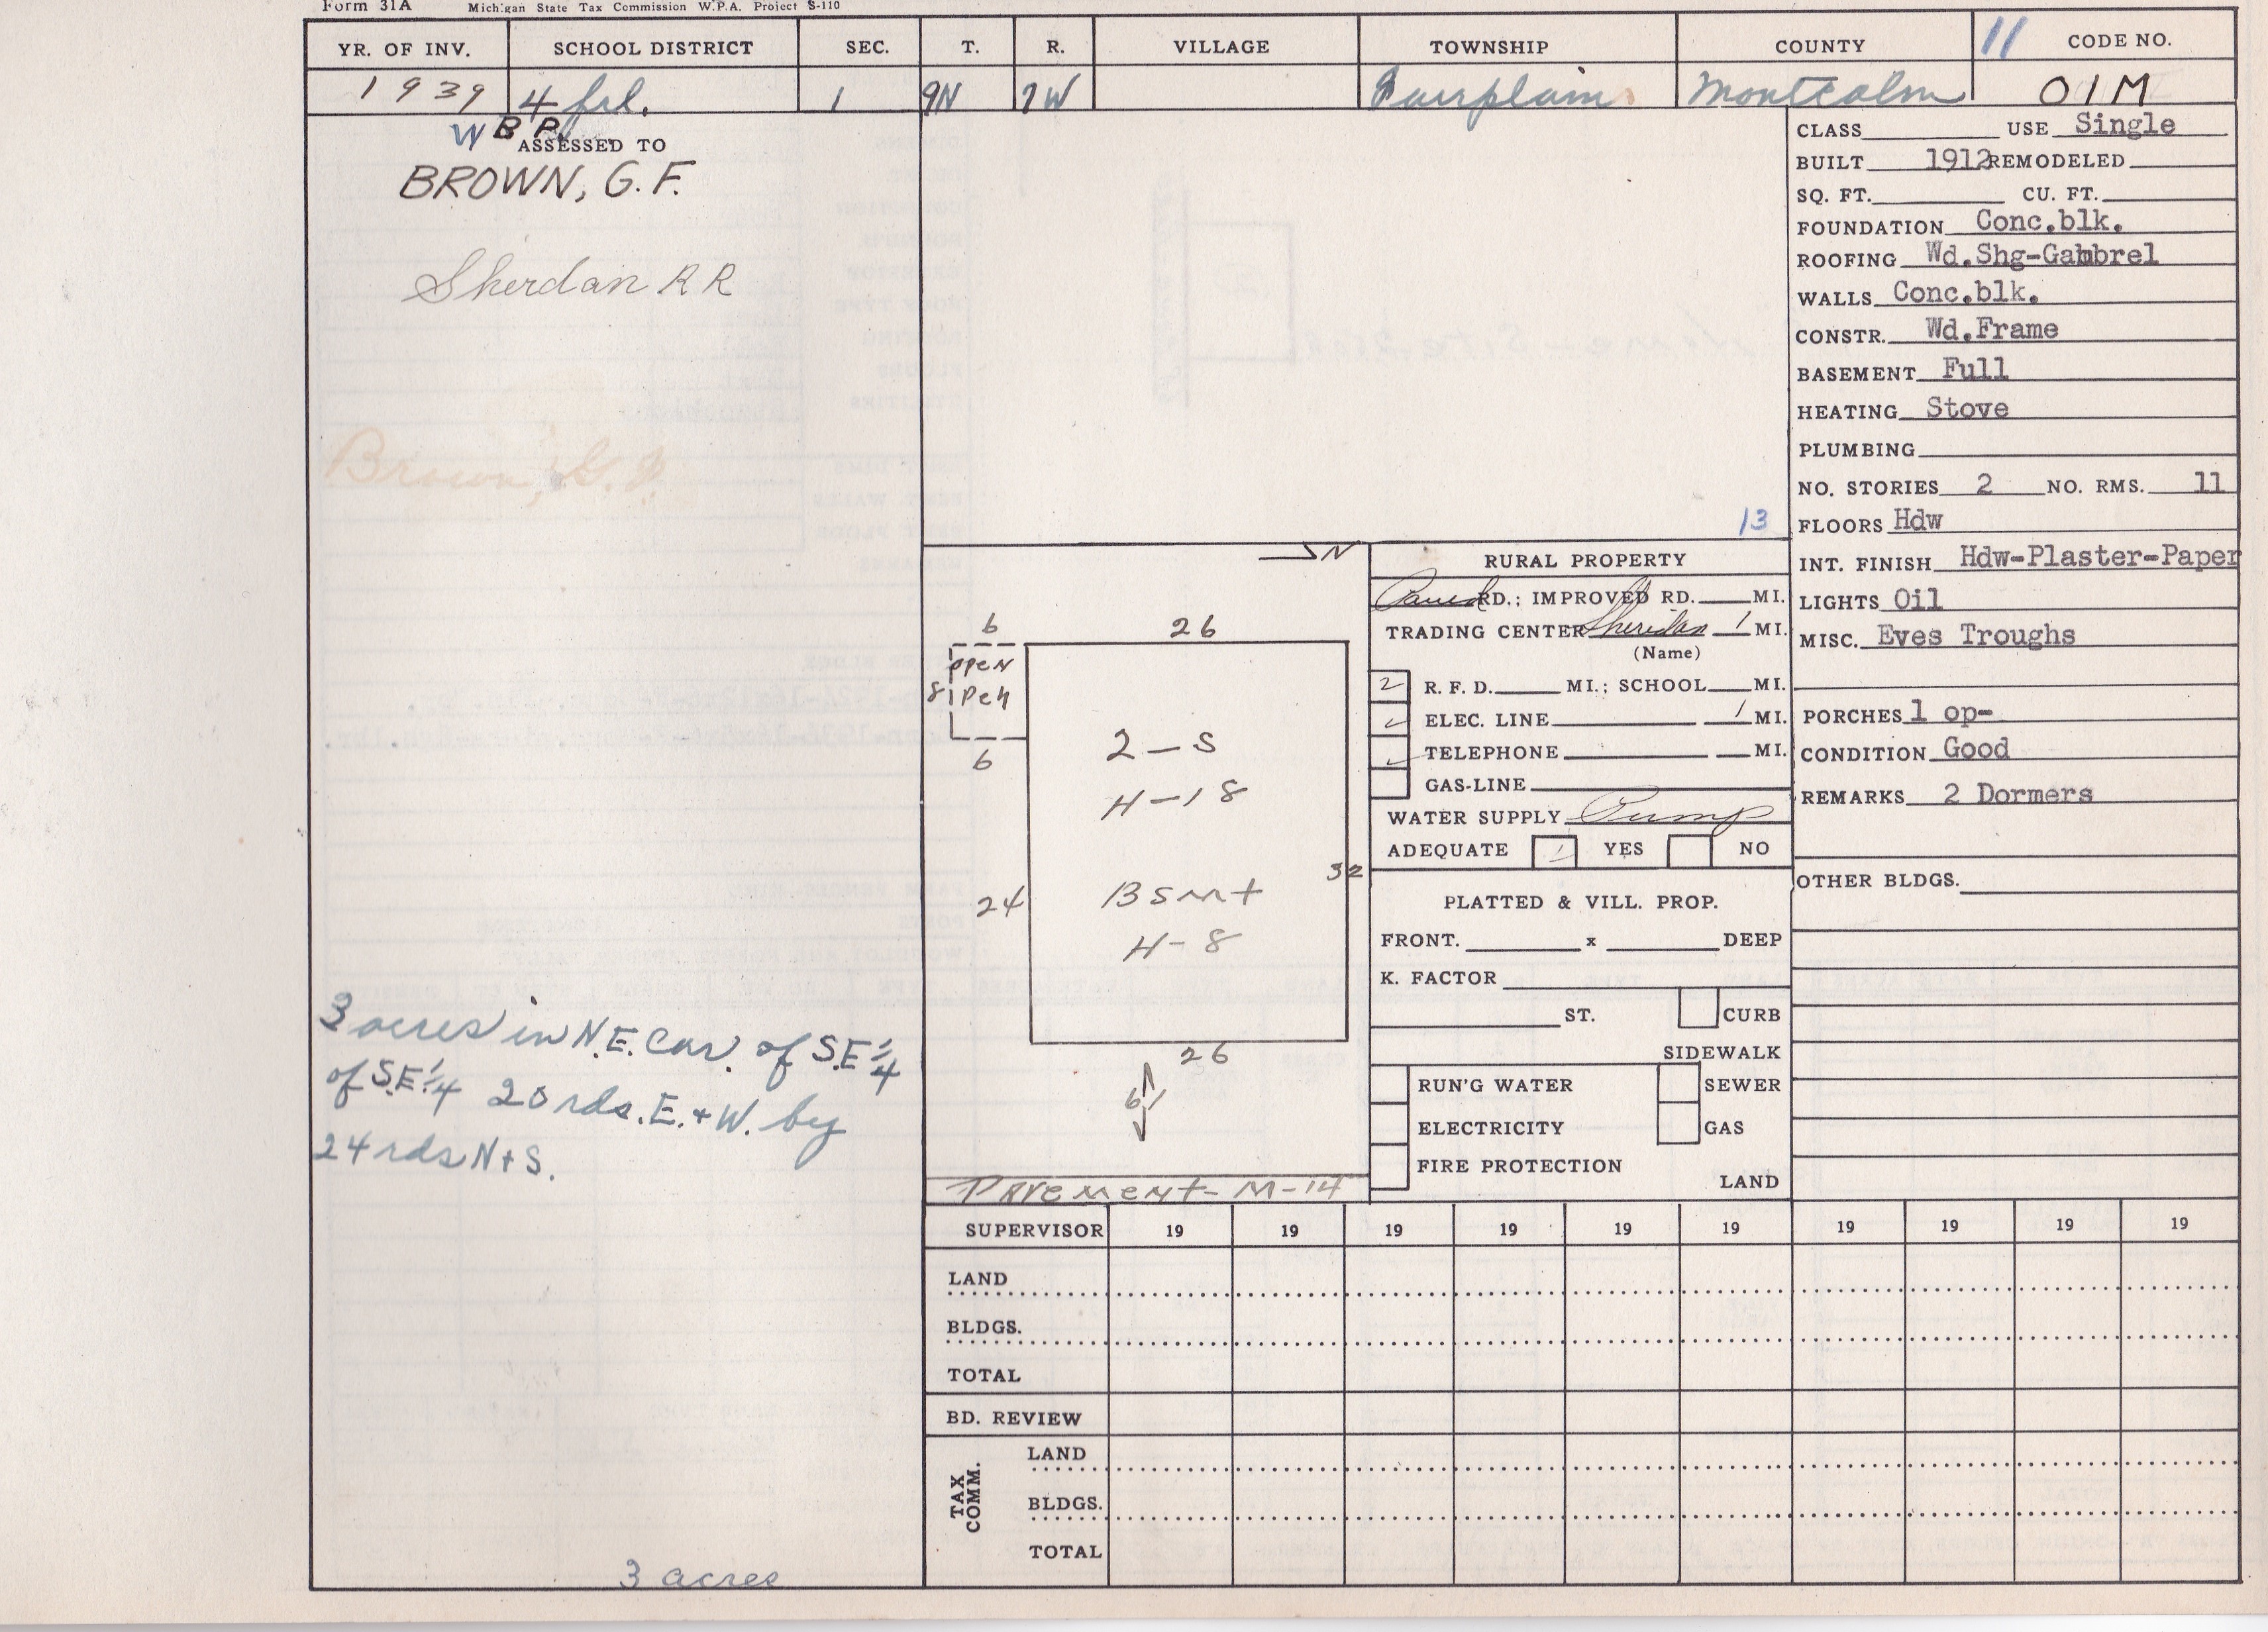 Form 31A Michigan State Tax Commission W.P.A. Project S-110
YR. OF INV. SCHOOL DISTRICT SEC. T. R. VILLAGE TOWNSHIP COUNTY 11 CODE NO.
1939 4 frl. 1 9N 7W Fairplain Montcalm 01M
W B P.
ASSESSED TO
BROWN, G.F.
Sherdan R R
Brown, G.F.
3 acres in N.E. Cor. of S.E 1/4
of S.E 1/4 20 rds. E. + W. by
24 rds N + S.
3 acres
13
N
6
26
8
open
Pch
6
2-S
H-18
24
32
Bsmt
H-8
26
61
Pavement-M-14
RURAL PROPERTY
Paved RD.; IMPROVED RD. MI.
TRADING CENTER Sheridan 1 MI.
(Name)
2 R. F. D. MI.; SCHOOL MI.
✓ ELEC. LINE 1 MI.
✓ TELEPHONE MI.
GAS-LINE
WATER SUPPLY Pump
ADEQUATE / YES NO
PLATTED & VILL. PROP.
FRONT. x DEEP
K. FACTOR
ST. CURB
SIDEWALK
RUN'G WATER SEWER
ELECTRICITY GAS
FIRE PROTECTION
LAND
CLASS USE Single
BUILT 1912 REMODELED
SQ. FT. CU. FT.
FOUNDATION Conc.blk.
ROOFING Wd.Shg-Gambrel
WALLS Conc.blk.
CONSTR. Wd.Frame
BASEMENT Full
HEATING Stove
PLUMBING
NO. STORIES 2 NO. RMS. 11
FLOORS Hdw
INT. FINISH Hdw-Plaster-Paper
LIGHTS Oil
MISC. Eves Troughs
PORCHES 1 op-
CONDITION Good
REMARKS 2 Dormers
OTHER BLDGS.
SUPERVISOR 19 19 19 19 19 19 19 19 19 19
LAND
BLDGS.
TOTAL
BD. REVIEW
TAX COMM.
LAND
BLDGS.
TOTAL